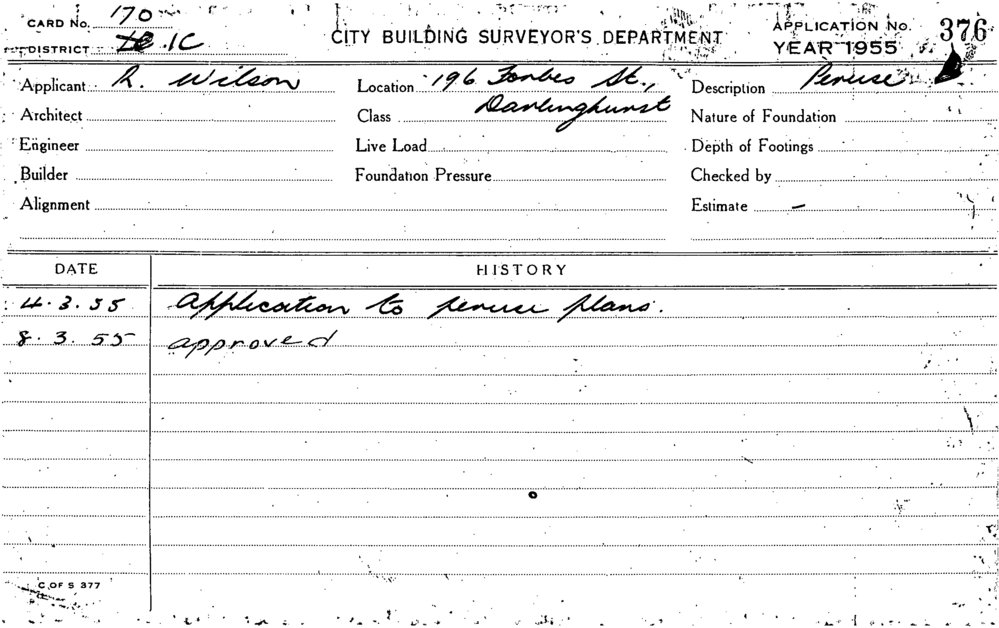 CARD No. 170
DISTRICT 1C
CITY BUILDING SURVEYOR'S DEPARTMENT
APPLICATION No. 376
YEAR 1955
Applicant R. Wilson
Location 196 Forbes St.,
Darlinghurst
Description Peruse
Architect
Class
Nature of Foundation
Engineer
Live Load
Depth of Footings
Builder
Foundation Pressure
Checked by
Alignment
Estimate –
DATE HISTORY
4.3.55 Application to peruse plans.
8.3.55 approved
C OF S 377